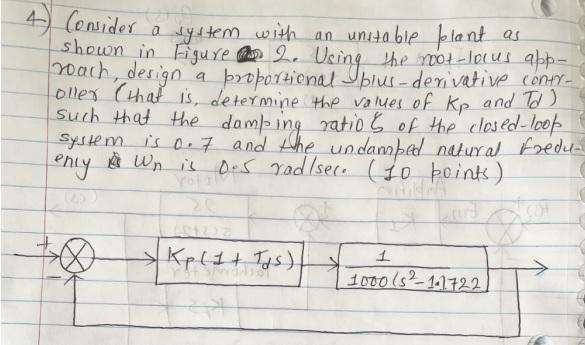 4) Consider a system with an unstable plant as
shown in Figure 2. Using the root-locus app-
roach, design a proportional-plus-derivative contr-
oller (that is, determine the values of Kp and Td)
such that the damping ratio ζ of the closed-loop
system is 0.7 and the undamped natural frequ-
ency Wn is 0.5 rad/sec. (10 points)
+
-
Kp(1 + Tds)
1
1000(s²-1.1722)